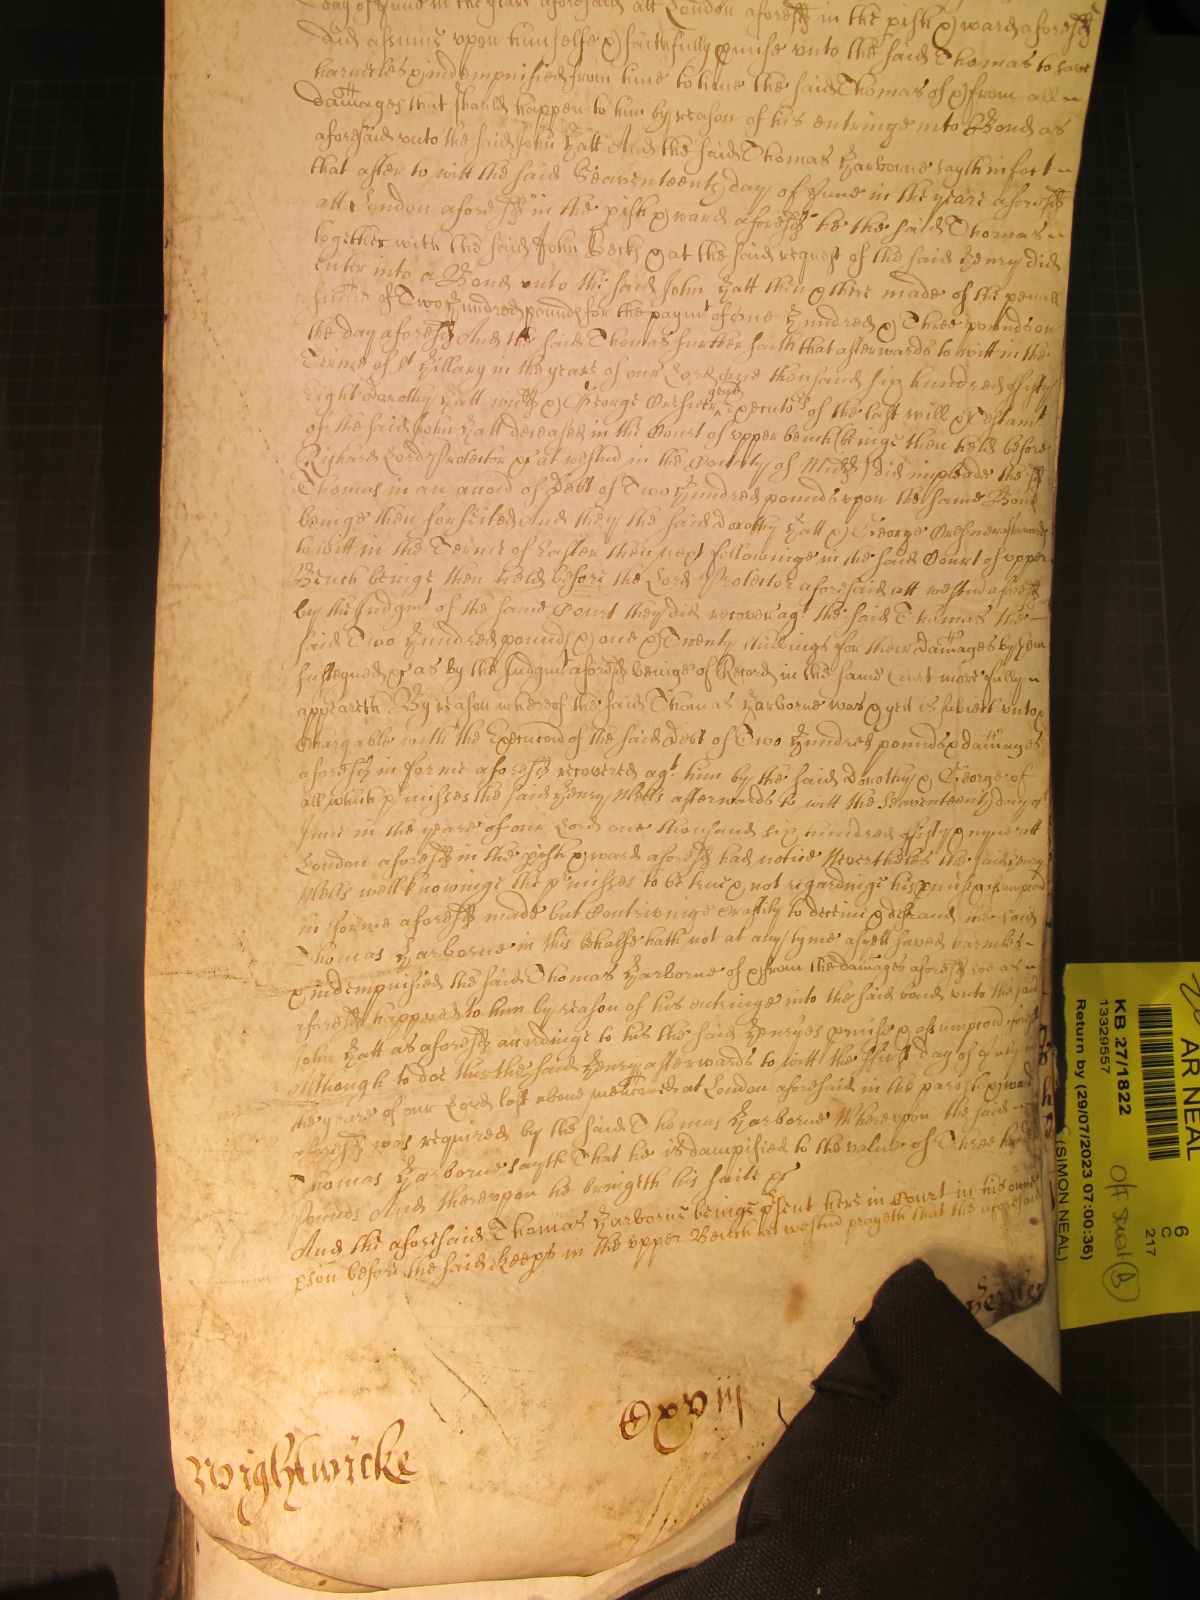 day of June in the yeare aforesaid att London aforesd in the pish & ward aforesd
did assume upon himselfe & faithfully pmise unto the said Thomas to save
harmeles & indempnified from time to time the said Thomas of & from all
damages that should happen to him by reason of his entringe into Bond as
aforesaid unto the said John Hatt And the said Thomas Harborne sayth in fact
that after to witt the said Seaventeenth day of June in the yeare aforesd
att London aforesd in the pish & ward aforesd he the said Thomas
together with the said John & at the said request of the said Henry did
enter into a Bond unto the said John Hatt then & there made of the penall
summe of Two Hundred pounds for the paymt of one Hundred & Three pounds on
the day aforesd And the said Thomas further saith that afterwards to witt in the
Terme of St Hillary in the yeare of our Lord one thousand six hundred fifty
Eight Dorothy Hatt widd & George gent Executors of the last will & Testamt
of the said John Hatt deceased in the Court of upper bench (beinge then held before
Richard Lord Protector &c at westmr in the County of Midd) did impleade the sd
Thomas in an accon of Debt of Two Hundred pounds upon the same Bond
beinge then forfeited And they the said Dorothy Hatt & George afterwards
to witt in the Terme of Easter then next followinge in the said Court of upper
Bench beinge then held before the Lord Protector aforesaid att westmr aforesd
by the Judgmt of the same Court they did recover agt the said Thomas the
said Two Hundred pounds & one & Twenty shillings for their damages by them
susteyned &c as by the Judgmt aforesd beinge of Record in the same Court more fully
appeareth By reason whereof the said Thomas Harborne was & yett is subiect unto &
Chargable with the Execucon of the said Debt of Two Hundred pounds & damages
aforesd in forme aforesd recovered agt him by the said Dorothy & George of
all which pmisses the said Henry Wells afterwards to witt the Seaventeenth day of
June in the yeare of our Lord one thousand six hundred fifty & nyne att
London aforesd in the pish & ward aforesd had notice Nevertheles the said Henry
Wells well knowinge the pmisses to be true & not regardinge his pmise & assumpcon
in forme aforesd made but Contrivinge Craftily to deceive & defraud the said
Thomas Harborne in this behalfe hath not at any tyme as yett saved harmles
& indempnified the said Thomas Harborne of & from the damages aforesd soe as
aforesd happned to him by reason of his entringe into the said bond unto the said
John Hatt as aforesd accordinge to his the said Henryes pmise & assumpcon aforesd
although to doe thus the said Henry afterwards to witt the First day of July in
the yeare of our Lord last above menconed at London aforesaid in the parish & ward
aforesd was required by the said Thomas Harborne Whereupon the said
Thomas Harborne sayth That he is dampnified to the value of Three hundred
Pounds And thereupon he bringeth his suite &c
And the aforesaid Thomas Harborne beinge psent here in Court in his owne
pson before the said Keeps in the upper Bench at westmr prayeth that the aforesaid
Cxviij
Wightwicke
AR NEAL
KB 27/1822
13329557
Return by (29/07/2023 07:00:36)
(SIMON NEAL)
6
C
217